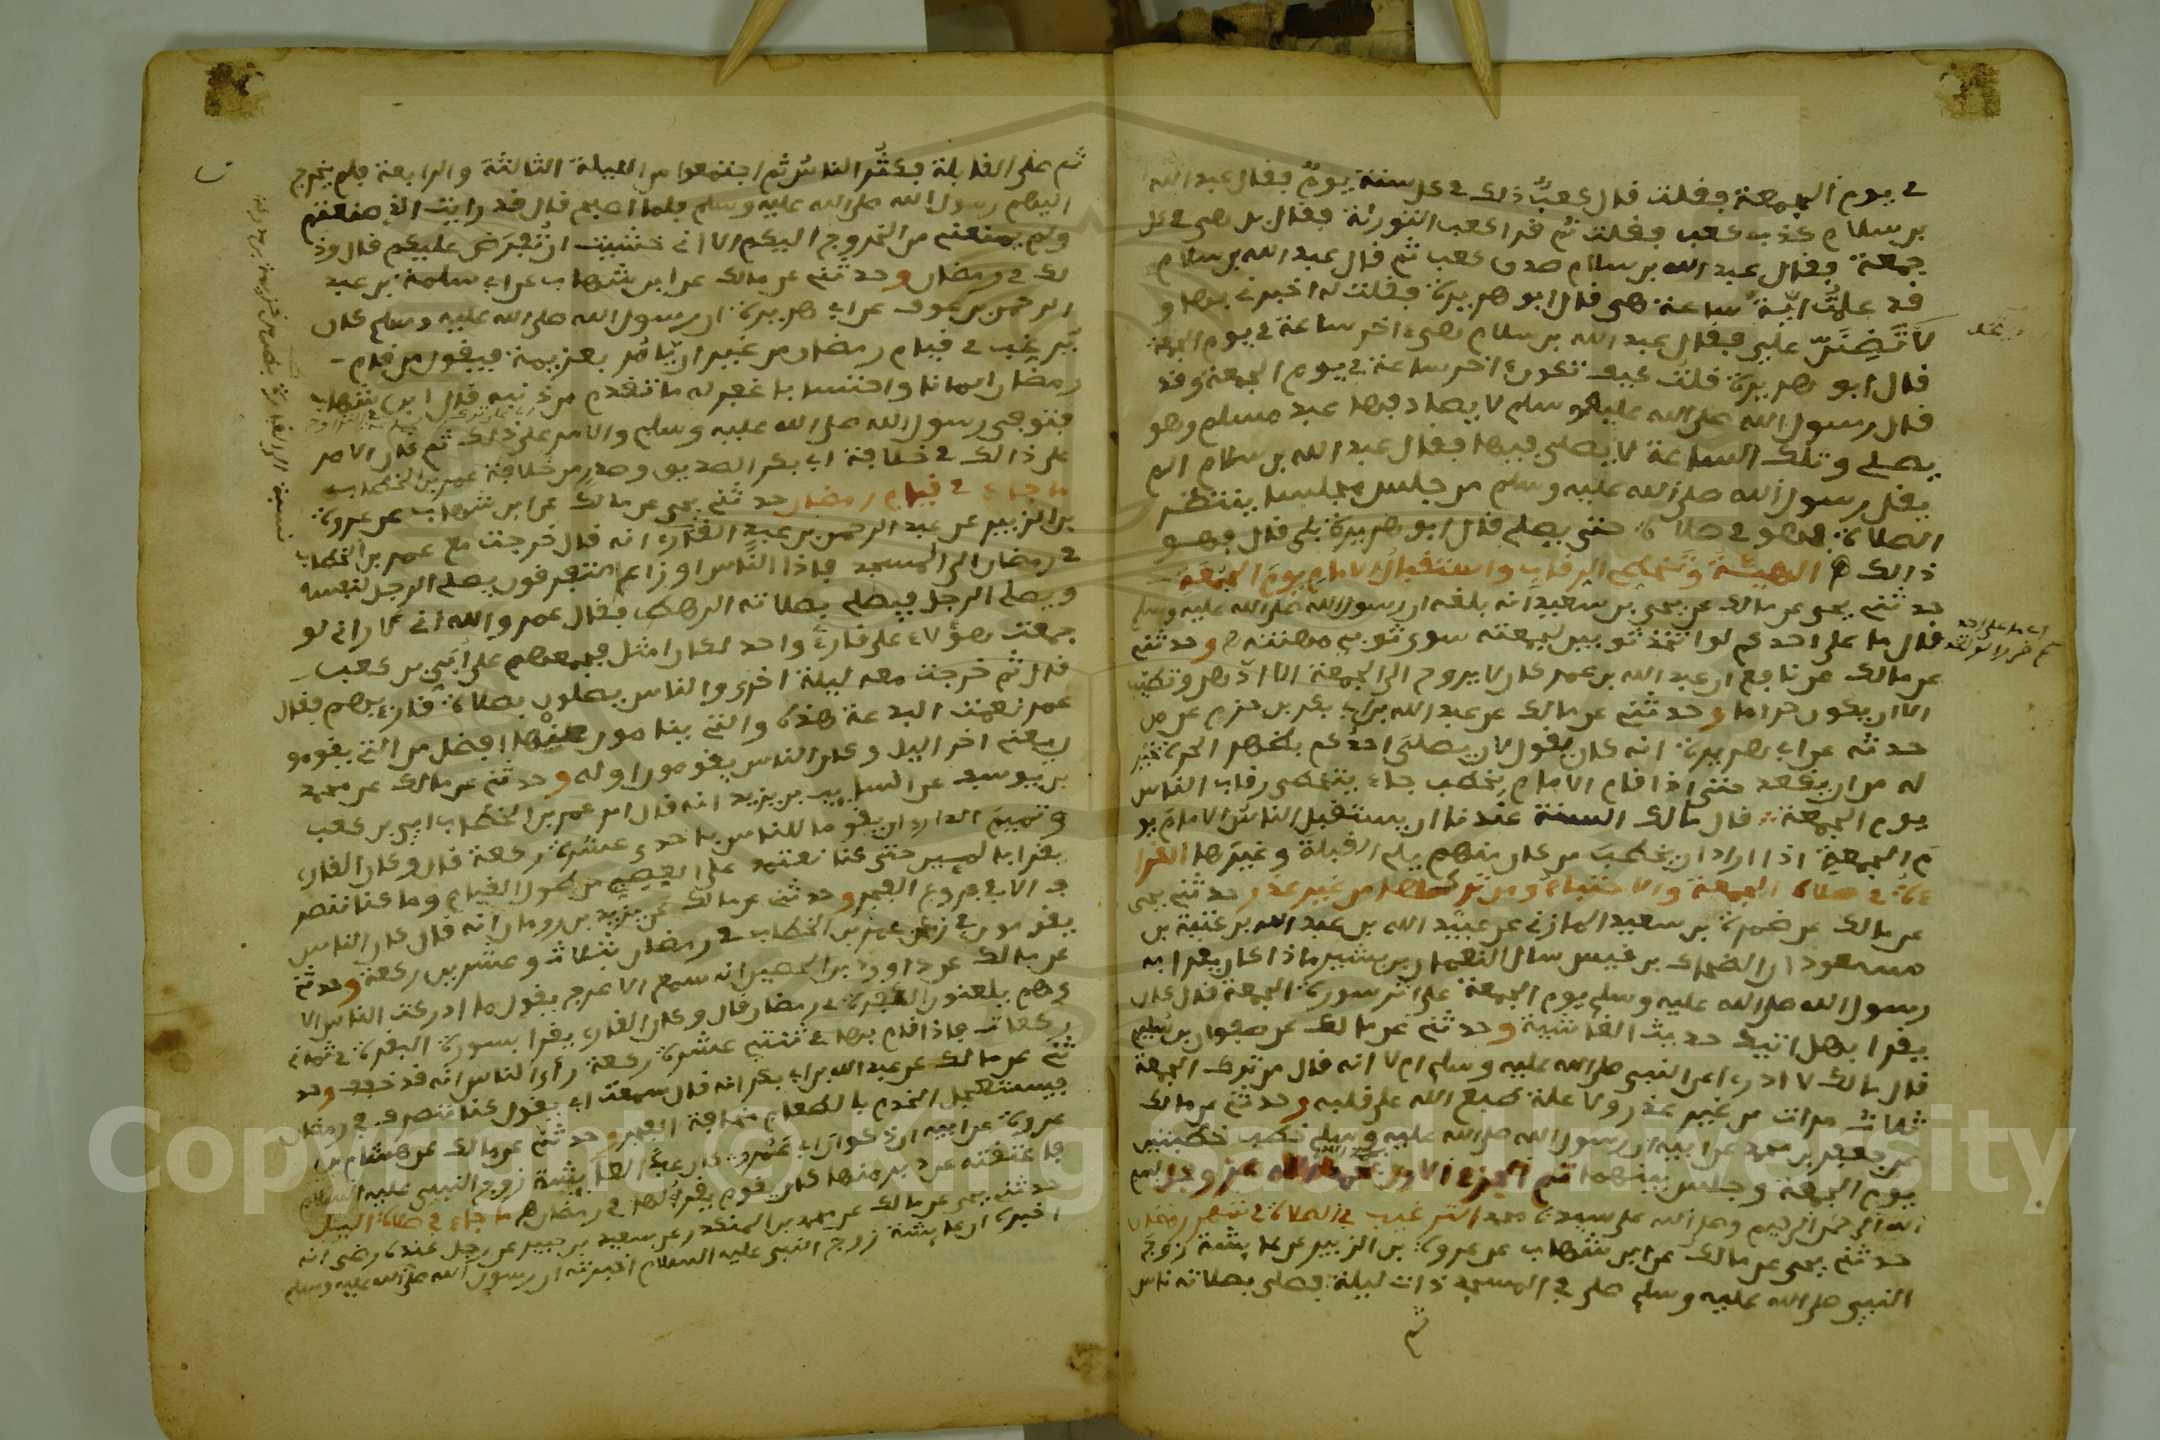 في يوم الجمعة فقلت قال كعب ذلك في كل سنة يوم فقال عبد الله
بن سلام كذب كعب فقلت ثم قرا كعب التورىة فقال بل هي في كل
جمعة فقال عبد الله بن سلام صدق كعب ثم قال عبد الله بن سلام
قد علمت اية ساعة هي قال ابو هريرة فقلت له اخبرني بها و
لا تضنن علي فقال عبد الله بن سلام هي ءاخر ساعة في يوم الجمعة
قال ابو هريرة قلت كيف تكون ءاخر ساعة في يوم الجمعة وقد
قال رسول الله صلى الله عليه وسلم لا يصادفها عبد مسلم وهو
يصلي وتلك الساعة لا يصلى فيها فقال عبد الله بن سلام الم
يقل رسول الله صلى الله عليه وسلم من جلس مجلسا ينتظر
الصلاة فهو في صلاة حتى يصلي قال ابو هريرة بلى قال فهو
ذالك الهيئة وتخطي الرقاب واستقبال الامام يوم الجمعة
حدثني يحيى عن مالك عن يحيى بن سعيد انه بلغه ان رسول الله صلى الله عليه وسلم
قال ما على احدكم لو اتخذ ثوبين لجمعته سوى ثوبي مهنته وحدثني
عن مالك عن نافع ان عبد الله بن عمر كان لا يروح الى الجمعة الا ادهن وتطيب
الا ان يكون حراما وحدثني عن مالك عن عبد الله بن ابي بكر بن حزم عن من
حدثه عن ابي هريرة انه كان يقول لان يصلي احدكم بظهر الحرة خير
له من ان يقعد حتى اذا قام الامام يخطب جاء يتخطى رقاب الناس
يوم الجمعة قال مالك السنة عندنا ان يستقبل الناس الامام يو
م الجمعة اذا اراد ان يخطب من كان منهم يلي القبلة وغيرها القرا
ءة في صلاة الجمعة والاحتباء ومن تركها من غير عذر حدثني يحيى
عن مالك عن ضمرة بن سعيد المازني عن عبيد الله بن عبد الله بن عتبة بن
مسعود ان الضحاك بن قيس سال النعمان بن بشير ماذا كان يقرا به
رسول الله صلى الله عليه وسلم يوم الجمعة على اثر سورة الجمعة قال كان
يقرا بهل اتيك حديث الغاشية وحدثني عن مالك عن صفوان بن سليم
قال مالك لا ادري اعن النبي صلى الله عليه وسلم ام لا انه قال من ترك الجمعة
ثلاث مرات من غير عذر ولا علة طبع الله على قلبه وحدثني عن مالك
عن جعفر بن محمد عن ابيه ان رسول الله صلى الله عليه وسلم خطب خطبتين
يوم الجمعة وجلس بينهما تم الجزء الاول بحمد الله عز وجل بسم
الله الرحمن الرحيم وصلى الله على سيدنا محمد الترغيب في الصلاة في شهر رمضان
حدثني يحيى عن مالك عن ابن شهاب عن عروة بن الزبير عن عايشة زوج
النبي صلى الله عليه وسلم صلى في المسجد ذات ليلة فصلى بصلاته ناس
ثم
ثم صلى القابلة فكثر الناس ثم اجتمعوا من الليلة الثالثة والرابعة فلم يخرج
اليهم رسول الله صلى الله عليه وسلم فلما اصبح قال قد رايت الذي صنعتم
ولم يمنعني من الخروج اليكم الا اني خشيت ان تفرض عليكم قال وذ
لك في رمضان وحدثني عن مالك عن ابن شهاب عن ابي سلمة بن عبد
الرحمن بن عوف عن ابي هريرة ان رسول الله صلى الله عليه وسلم كان
يرغب في قيام رمضان من غير ان يامر بعزيمة فيقول من قام
رمضان ايمانا واحتسابا غفر له ما تقدم من ذنبه قال ابن شهاب
فتوفي رسول الله صلى الله عليه وسلم والامر على ذلك ثم كان الامر
على ذالك في خلافة ابي بكر الصديق وصدر من خلافة عمر بن الخطاب
ما جاء في قيام رمضان حدثني يحيى عن مالك عن ابن شهاب عن عروة
بن الزبير عن عبد الرحمن بن عبد القارئ انه قال خرجت مع عمر بن الخطاب
في رمضان الى المسجد فاذا الناس اوزاع متفرقون يصلي الرجل لنفسه
ويصلي الرجل فيصلي بصلاته الرهط فقال عمر والله اني لاراني لو
جمعت هؤلاء على قارئ واحد لكان امثل فجمعهم على ابي بن كعب
قال ثم خرجت معه ليلة اخرى والناس يصلون بصلاة قارئهم فقال
عمر نعمت البدعة هذه والتي ينامون عنها افضل من التي يقومو
ن يعني اخر اليل وكان الناس يقومون اوله وحدثني عن مالك عن محمد
بن يوسف عن السايب بن يزيد انه قال امر عمر بن الخطاب ابي بن كعب
وتميم الداري ان يقوما للناس باحدى عشرة ركعة قال وكان القارئ
يقرا بالمئين حتى كنا نعتمد على العصي من طول القيام وما كنا ننصر
ف الا في فروع الفجر وحدثني عن مالك عن يزيد بن رومان انه قال كان الناس
يقومون في زمان عمر بن الخطاب في رمضان بثلاث وعشرين ركعة وحدثني
عن مالك عن داوود بن الحصين انه سمع الاعرج يقول ما ادركت الناس الا
وهم يلعنون الكفرة في رمضان قال وكان القارئ يقرا بسورة البقرة في ثماني
ركعات فاذا قام بها في ثنتي عشرة ركعة رأى الناس انه قد خفف وحد
ثني عن مالك عن عبد الله بن ابي بكر انه قال سمعت ابي يقول كنا ننصرف في رمضان
فيستعجل الخدم بالطعام مخافة الفجر وحدثني عن مالك عن هشام بن
عروة عن ابيه ان ذكوان ابا عمرو كان عبدا لعايشة زوج النبي عليه السلام
فاعتقته عن دبر منها كان يقوم يقرا لها في رمضان ما جاء في صلاة اليل
حدثني يحيى عن مالك عن محمد بن المنكدر عن سعيد بن جبير عن رجل عنده رضى انه
اخبره ان عايشة زوج النبي عليه السلام اخبرته ان رسول الله صلى الله عليه وسلم
Copyright © King Saud University